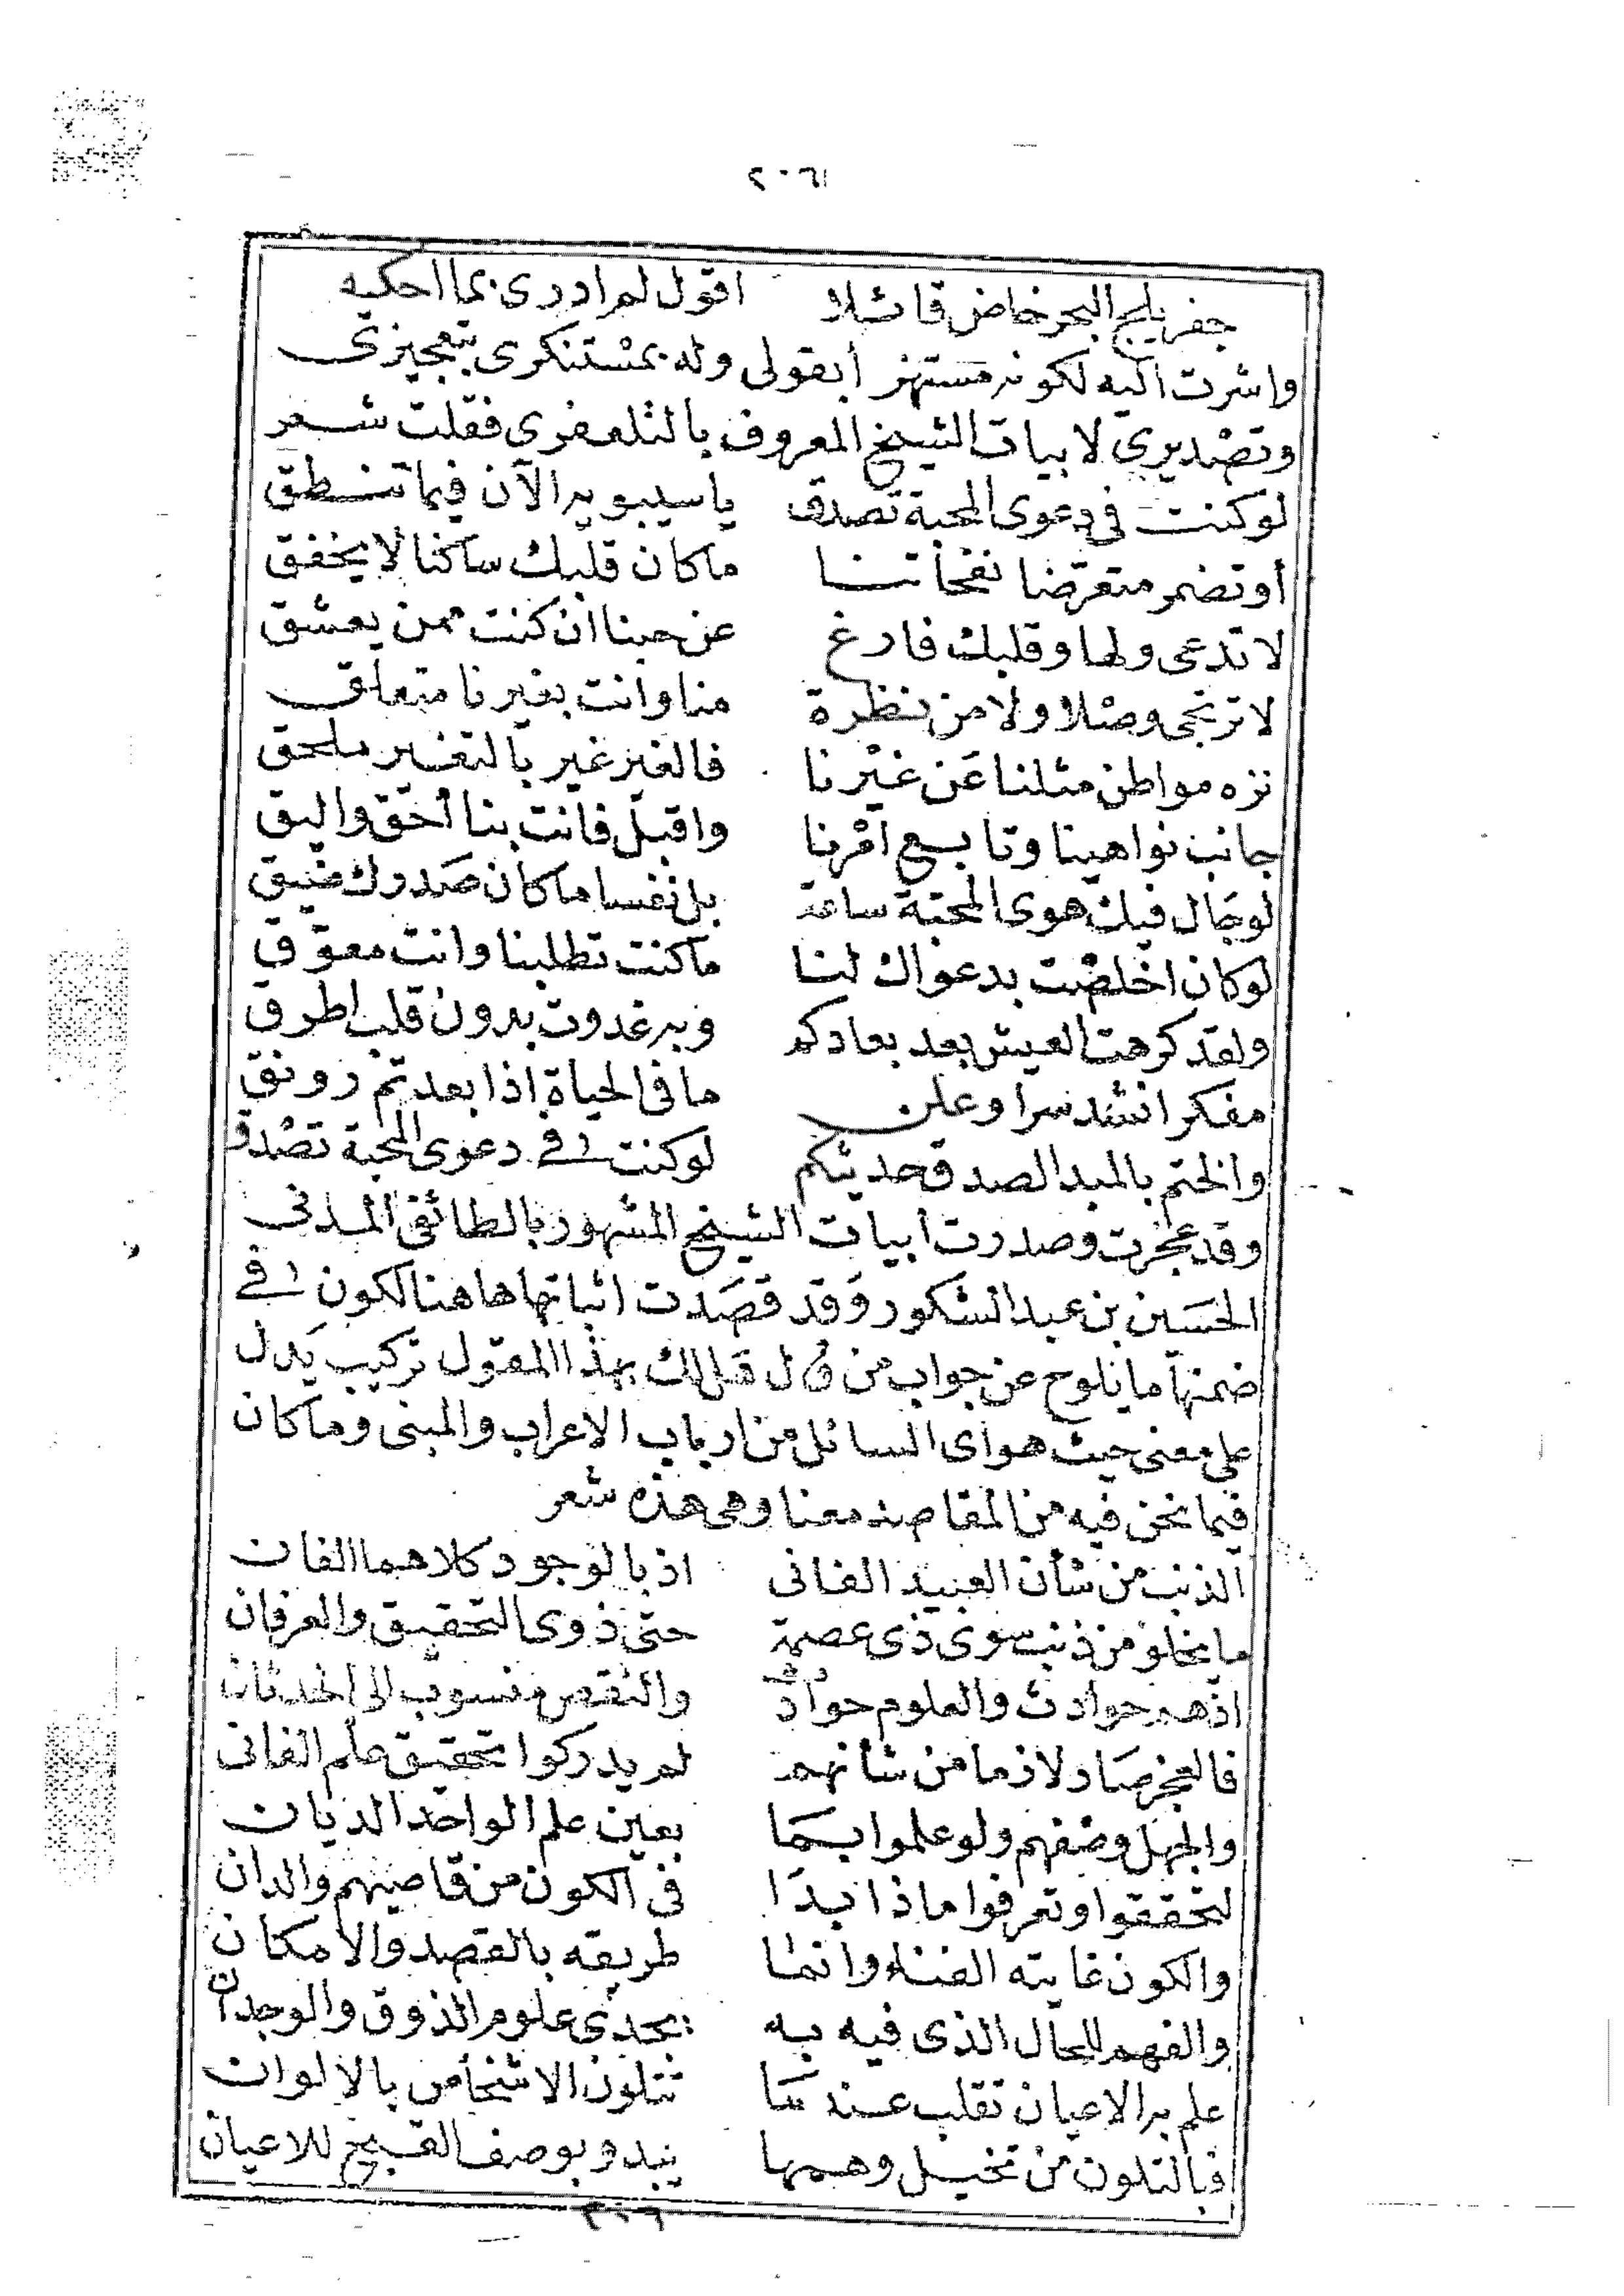 ٢٠٦
جفر بلج البحر خاض قائلا اقول لم ادرى بما احكيه
واشرت اليه لكونه مستهزأ بقولى وله بمستنكرى بتعجيزى
وتصديرى لابيات الشيخ المعروف بالتلعفرى فقلت شعر
لوكنت فى دعوى المحبة تصدق ياسيبويه الآن فيما تنطق
أوتضمر متعرضا نفحاتنا ماكان قلبك ساكنا لا يخفق
لا تدعى ولها وقلبك فارغ عن حبنا ان كنت ممن يعشق
لا ترتجى وصلا ولا من نظرة منا وانت بغيرنا متعلق
نزه مواطن مثلنا عن غيرنا فالغير غير بالتغير ملحق
جانب نواهينا وتابع امرنا واقبل فانت بنا أحق واليق
لوجال فيك هوى المحبة ساعة بل نفسا ماكان صدرك ضيق
لوكان اخلصت بدعواك لنا ماكنت تطلبنا وانت معوق
ولقد كرهت العيش بعد بعادكم وبه غدوت بدون قلب اطرق
مفكرا انشد سرا وعلن ما فى الحياة اذا بعدتم رونق
والختم بالمبدا لصدق حديثكم لوكنت فى دعوى المحبة تصدق
وقد عجزت وصدرت أبيات الشيخ المشهور بالطائفى المدنى
الحسين بن عبد الشكور وقد قصدت اثباتها هاهنا لكون فى
ضمنها ما يلوح عن جواب من قال هل لك بهذا المقول تركيب يدل
على معنى حيث هو اى السائل من ارباب الاعراب والمبنى وماكان
فيما نحن فيه من المقاصد معنا وهى هذه شعر
الذنب من شأن العبيد الفانى اذ بالوجود كلاهما الفان
ما يخلو من ذنب سوى ذى عصمة حتى ذوى التحقيق والعرفان
اذ هم حوادث والعلوم حوادث والنقص منسوب الى الحدثان
فالعجز صار لازما من شأنهم لم يدركوا تحقيق علم الفانى
والجهل وصفهم ولو علموا بما بعين علم الواحد الديان
لتحققوا وتعرفوا ماذا بدا فى الكون من قاصيهم والدان
والكون غايته الفناء وانما طريقه بالقصد والامكان
والفهم للحال الذى فيه به يجدى علوم الذوق والوجدان
علم به الاعيان تقلب عندنا تتلون الاشخاص بالالوان
فبالتلون من تخيل وهمها يبدو بوصف القبيح للاعيان
٢٠٦